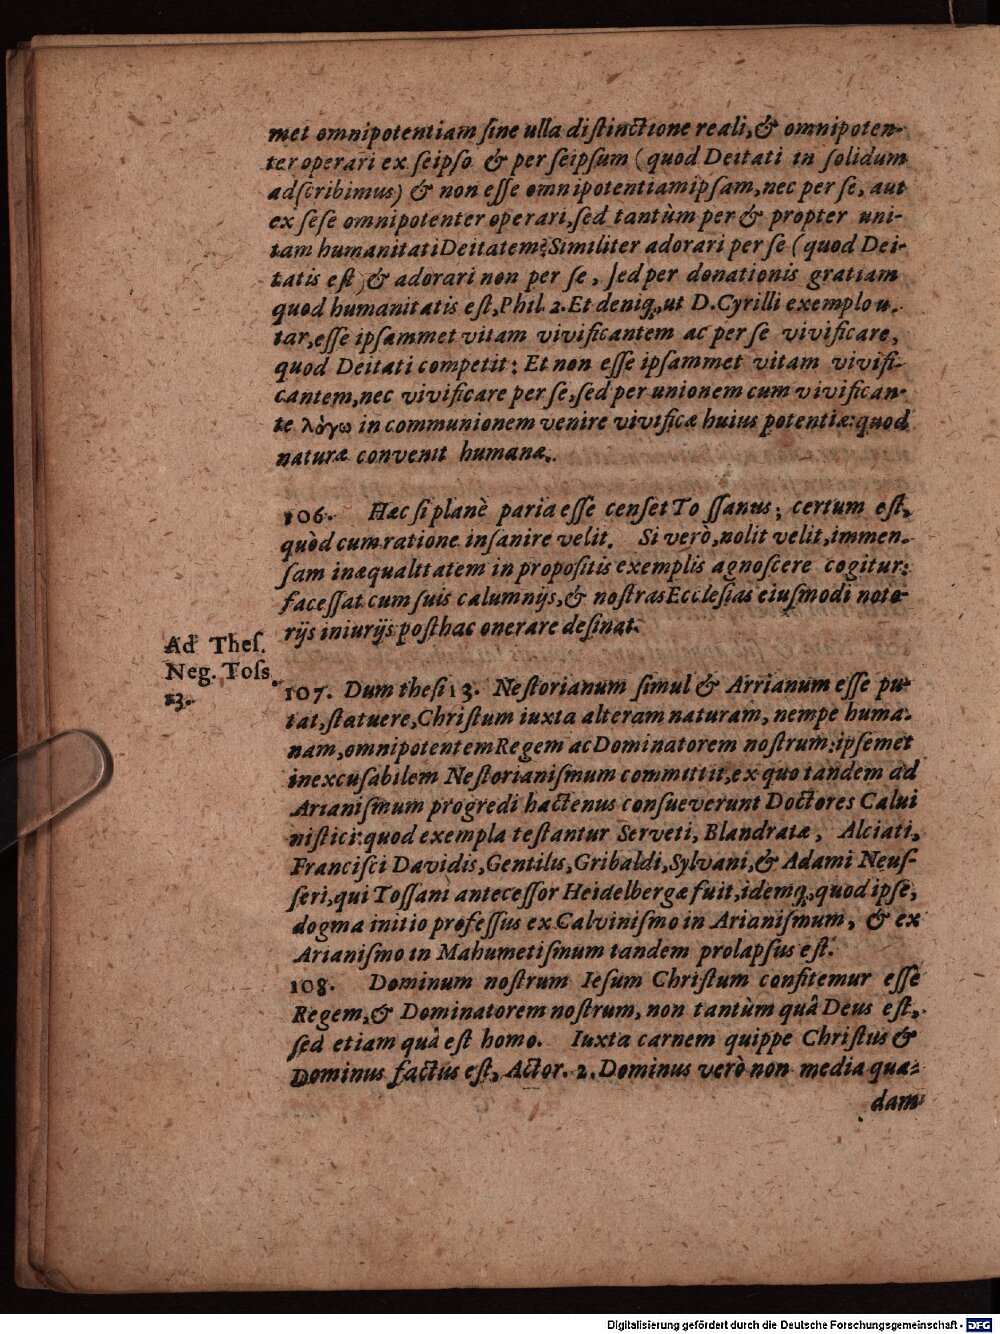 met omnipotentiam ſine ulla diſtinctione reali, & omnipoten-
ter operari ex ſeipſo & per ſeipſum (quod Deitati in ſolidum
adſcribimus) & non eſſe omnipotentiam ipſam, nec per ſe, aut
ex ſeſe omnipotenter operari, ſed tantùm per & propter uni-
tam humanitati Deitatem? Similiter adorari per ſe (quod Dei-
tatis eſt) & adorari non per ſe, ſed per donationis gratiam
quod humanitatis eſt, Phil. 2. Et deniq;, ut D. Cyrilli exemplo u-
tar, eſſe ipſammet vitam vivificantem ac per ſe vivificare,
quod Deitati competit: Et non eſſe ipſammet vitam vivifi-
cantem, nec vivificare per ſe, ſed per unionem cum vivifican-
te λόγω in communionem venire vivificæ huius potentiæ: quod
naturæ convenit humanæ.
106. Hæc ſi planè paria eſſe cenſet Toſſanus; certum eſt,
quòd cum ratione inſanire velit. Si verò, nolit velit, immen-
ſam inæqualitatem in propoſitis exemplis agnoſcere cogitur:
faceſſat cum ſuis calumnijs, & noſtras Eccleſias eiuſmodi noto-
rijs iniurijs poſthac onerare deſinat.
Ad Theſ.
Neg. Toſs.
13.
107. Dum theſi 13. Neſtorianum ſimul & Arrianum eſſe pu-
tat, ſtatuere, Chriſtum iuxta alteram naturam, nempe huma-
nam, omnipotentem Regem ac Dominatorem noſtrum: ipſemet
inexcuſabilem Neſtorianiſmum committit, ex quo tandem ad
Arianiſmum progredi hactenus conſueverunt Doctores Calui
niſtici: quod exempla teſtantur Serveti, Blandratæ, Alciati,
Franciſci Davidis, Gentilis, Gribaldi, Sylvani, & Adami Neuſ-
ſeri, qui Toſſani anteceſſor Heidelbergæ fuit, idemq;, quod ipſe,
dogma initio profeſſus ex Calviniſmo in Arianiſmum, & ex
Arianiſmo in Mahumetiſmum tandem prolapſus eſt.
108. Dominum noſtrum Ieſum Chriſtum confitemur eſſe
Regem, & Dominatorem noſtrum, non tantùm quâ Deus eſt,
ſed etiam quâ eſt homo. Iuxta carnem quippe Chriſtus &
Dominus factus eſt, Actor. 2. Dominus verò non media qua-
dam
Digitalisierung gefördert durch die Deutsche Forschungsgemeinschaft - DFG